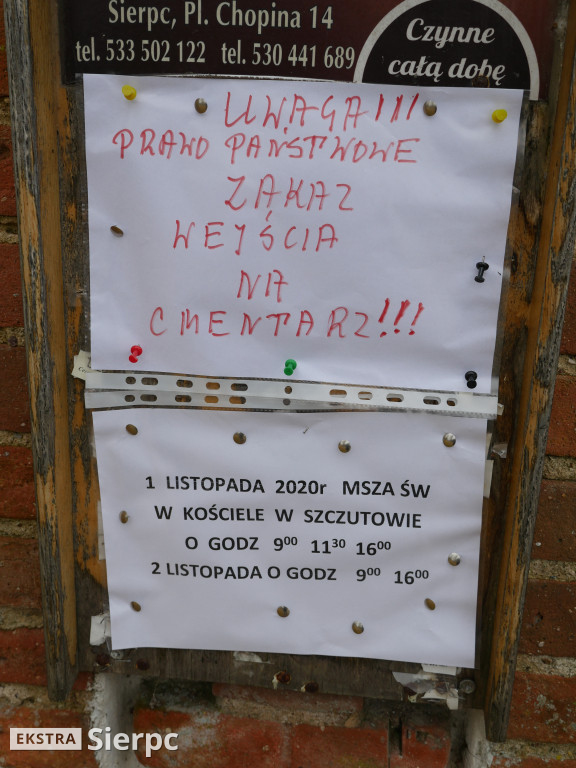 Sierpc, Pl. Chopina 14
tel. 533 502 122 tel. 530 441 689
Czynne
całą dobę
UWAGA!!!
PRAWO PAŃSTWOWE
ZAKAZ
WEJŚCIA
NA
CMENTARZ!!!
1 LISTOPADA 2020r MSZA ŚW
W KOŚCIELE W SZCZUTOWIE
O GODZ 9⁰⁰ 11³⁰ 16⁰⁰
2 LISTOPADA O GODZ 9⁰⁰ 16⁰⁰
EKSTRA Sierpc